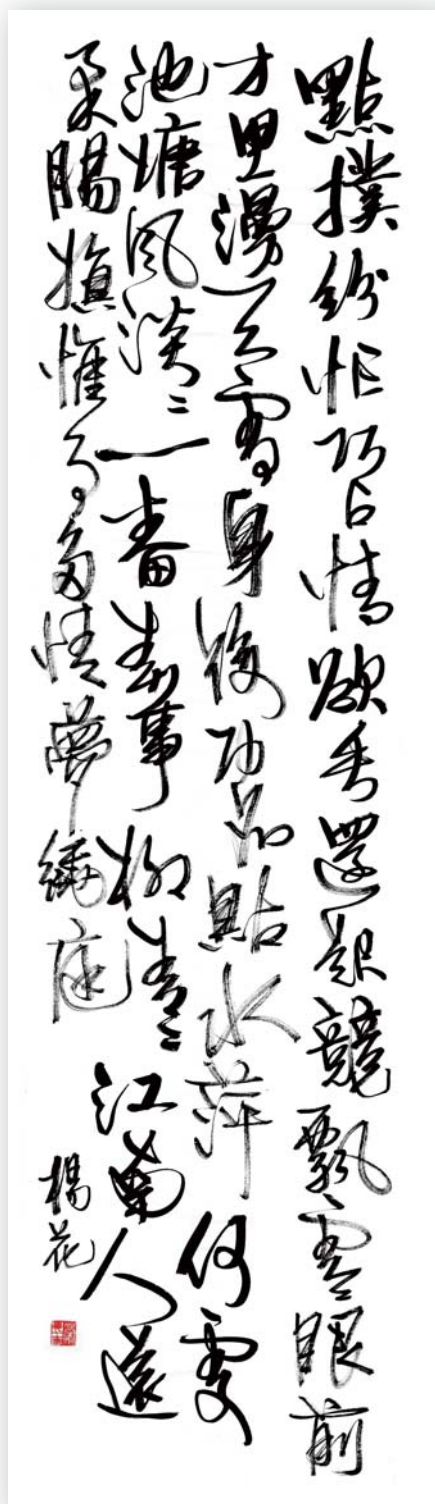 點撲紛忙巧占情欲垂還起競飄零眼前
才思漫天雪身後功名點水萍何處
池塘風淡〻一番春事柳青〻江南人遠
柔腸損惟有多情夢繞庭
楊花